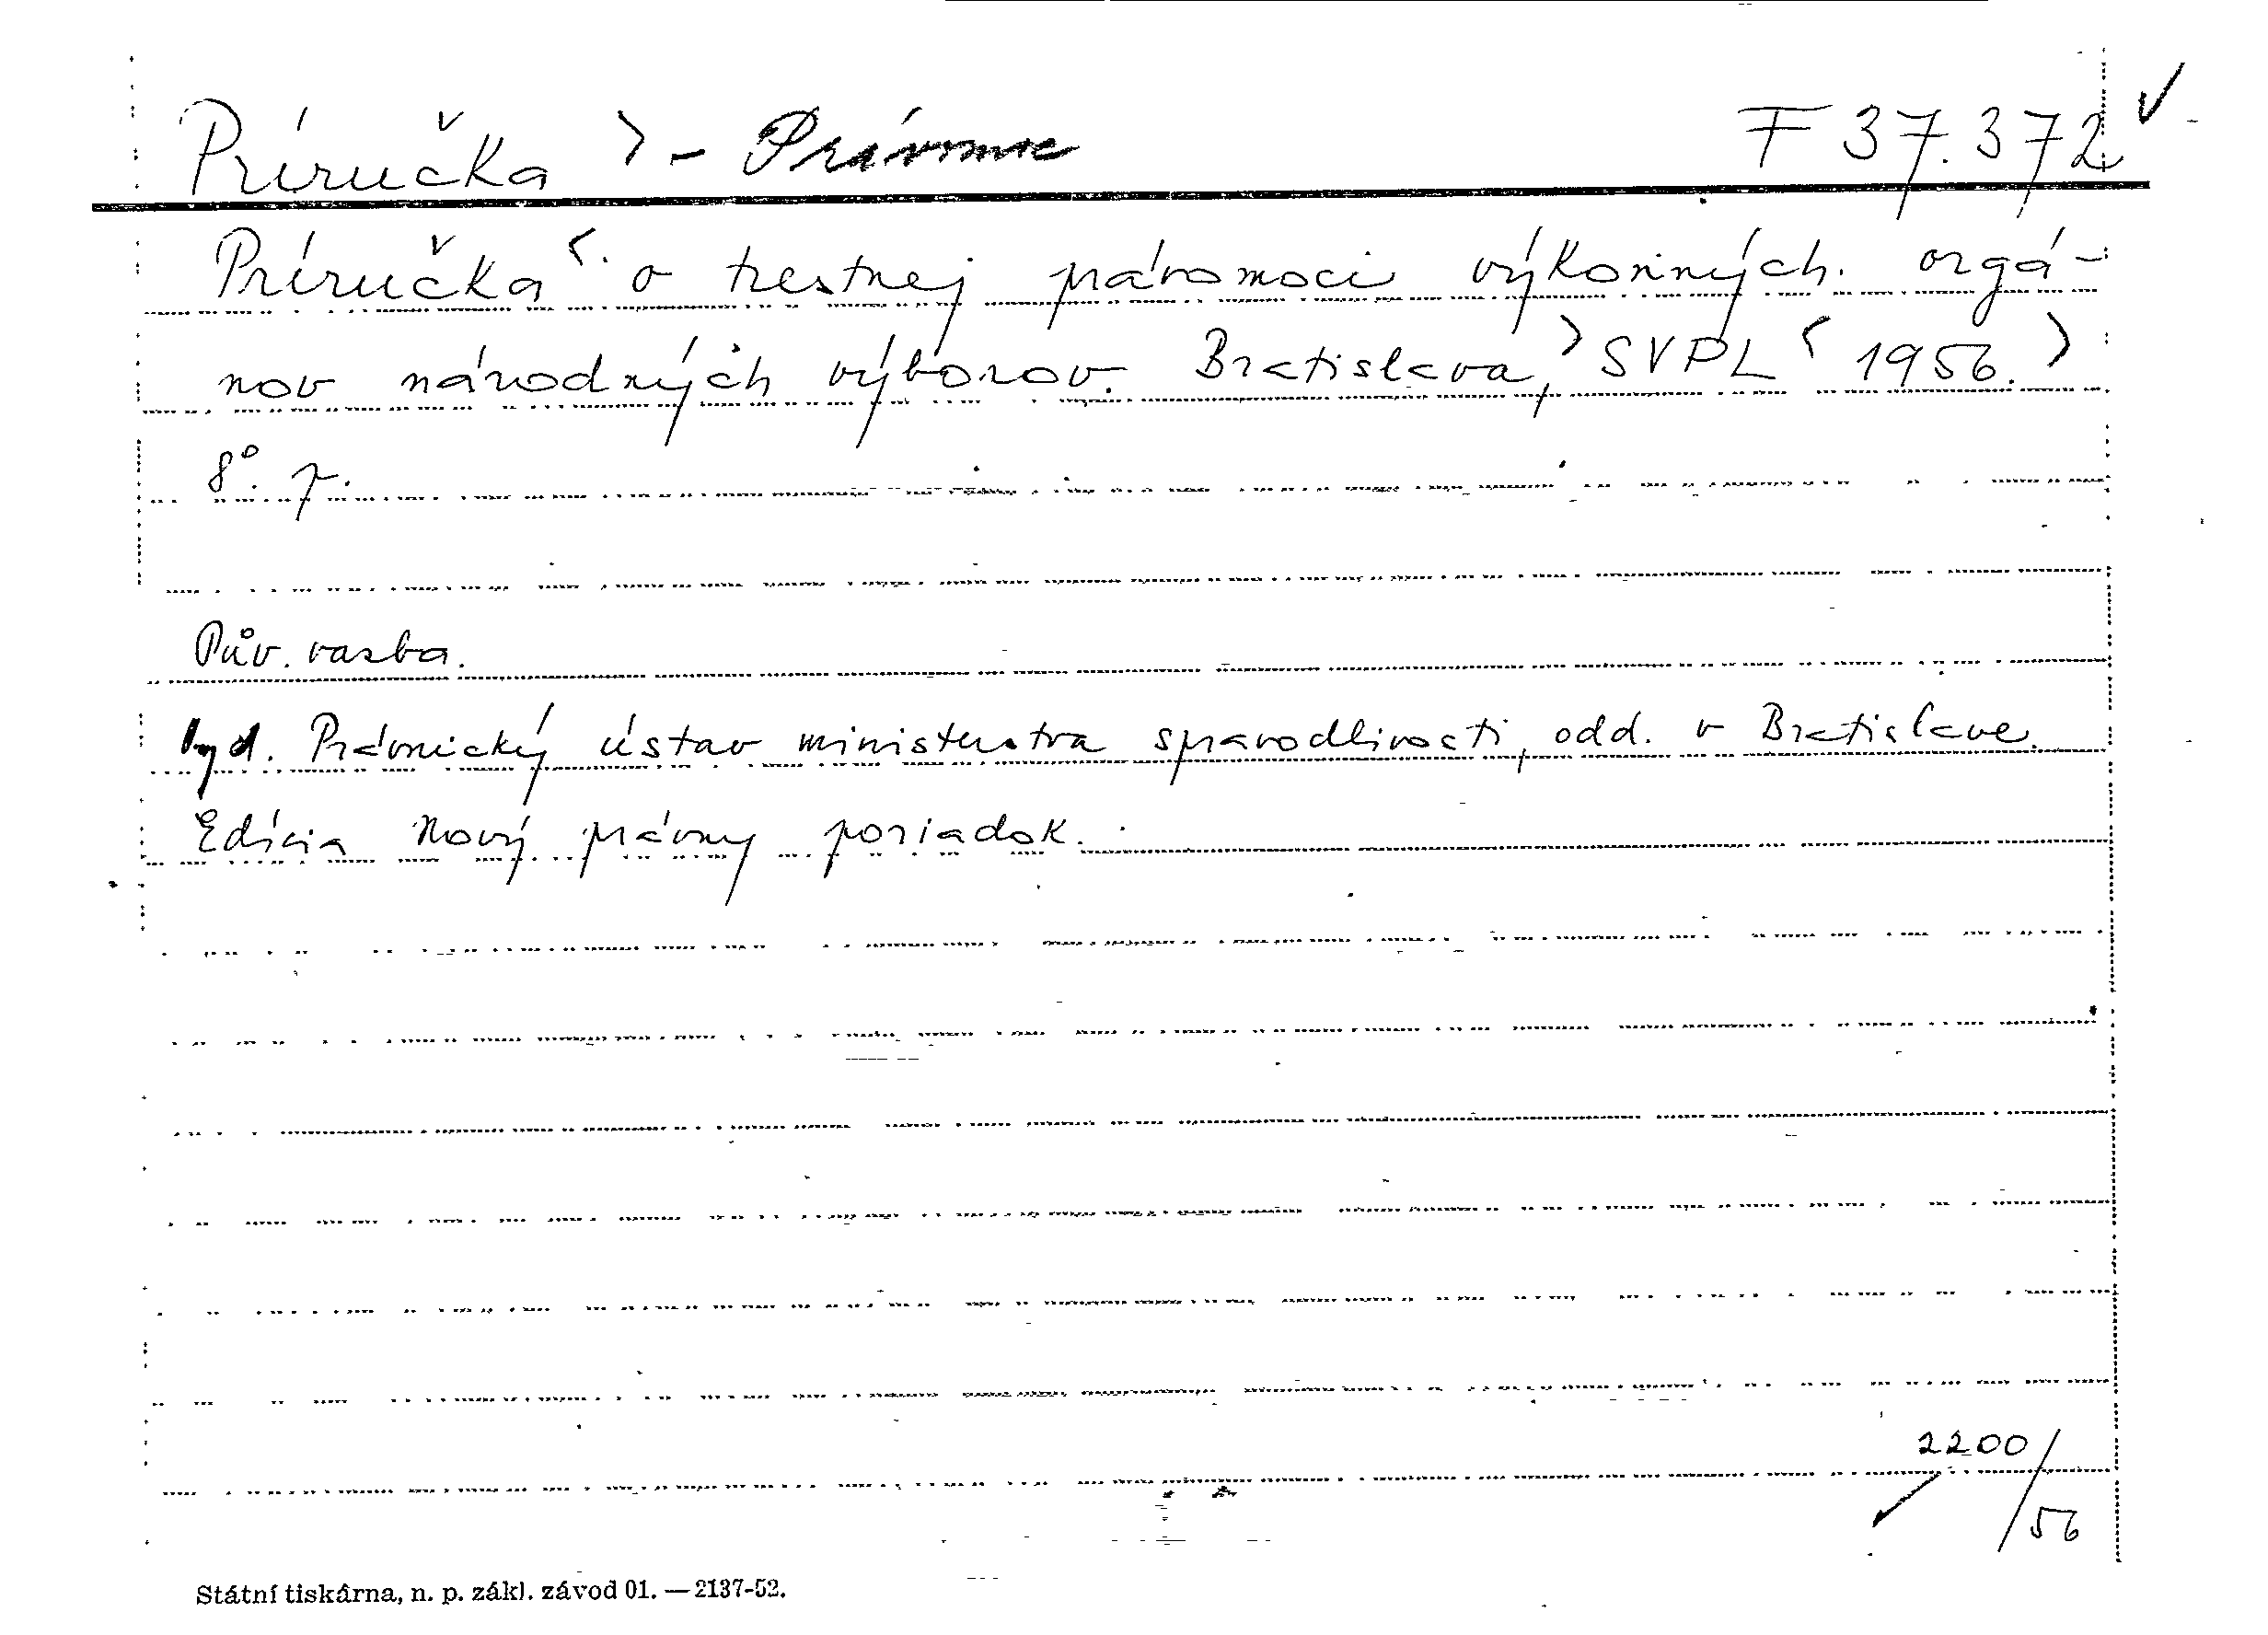 Príručka > - Právomoc F 37.372 ✓
Príručka < o trestnej právomoci výkonných orgá-
nov národných výborov. Bratislava, > SVPL < 1956. >
8°. 7.
Pův. vazba.
Vyd. Právnický ústav ministerstva spravodlivosti, odd. v Bratislave.
Edícia Nový právny poriadok.
2200/
/56
Státní tiskárna, n. p. zákl. závod 01. — 2137-52.